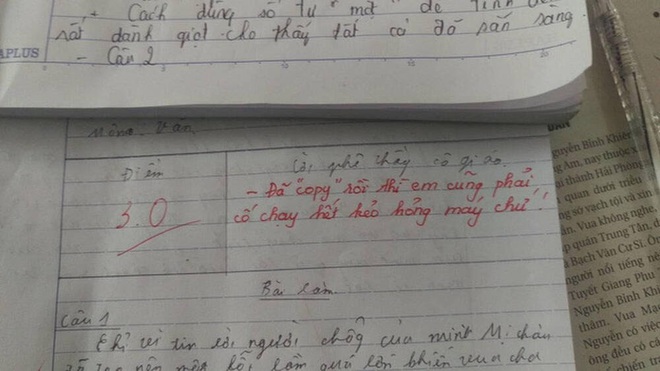 + Cách dùng số từ "một" để tính
rất đanh giọt cho thấy tất cả đã sẵn sàng
APLUS
- Câu 2
Môn: Văn
Điểm
Lời phê thầy cô giáo
3.0
- Đã "copy" rồi thì em cũng phải
cố chạy hết kẻo hỏng máy chứ!!
Bài làm
Câu 1
Chỉ vì tin lời người chồng của mình Mị châu
nên một lỗi lầm quá lớn khiến vua cha
guyễn Bỉnh Khiê
g Am, nay thuộc x
thành Hải Phòng
quan dưới triều
ng sớ vạch tội và xin
ần. Vua không nghe,
ập quán Trung Tân, d
à Bạch Vân Cư Sĩ. Ôn
người nổi tiếng
Tuyết Giang Phu
Nguyễn Bỉnh Khi
thâm. Vua Mạ
Nguyễn có việc
ông đều có cá
chiến tra